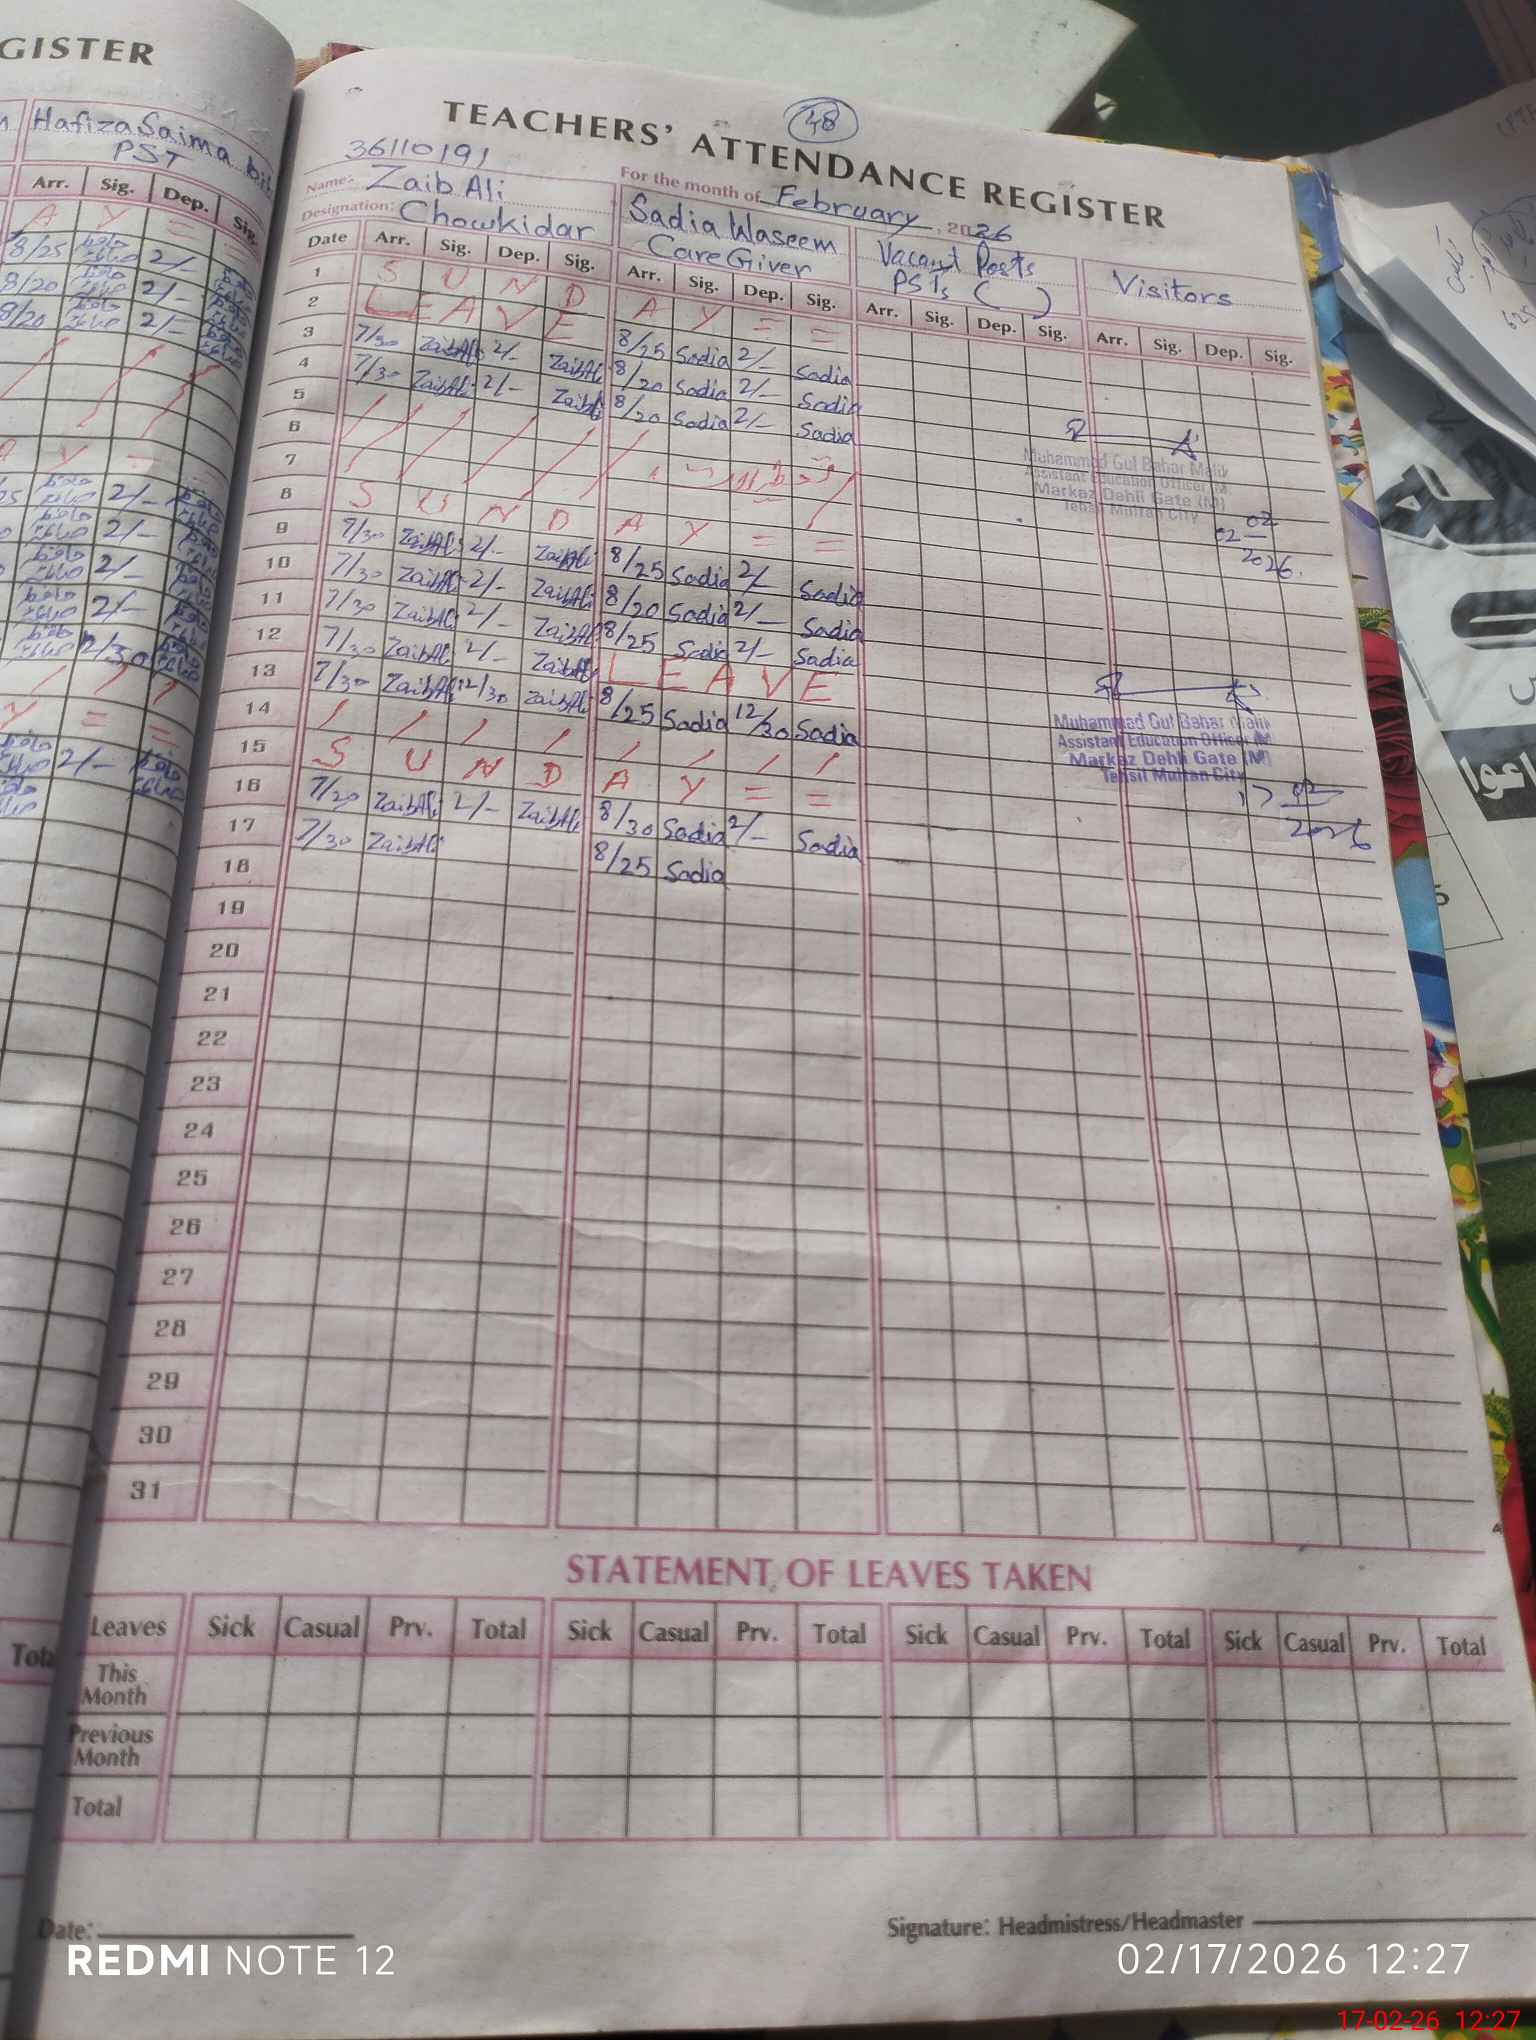 GISTER
Hafiza Saima bibi
PST
Arr. Sig. Dep. Sig.
A Y =
8/25 2/-
8/20 2/-
8/20 2/-
48
TEACHERS' ATTENDANCE REGISTER
36110191
For the month of February, 2026
Name: Zaib Ali
Designation: Chowkidar
Sadia Waseem
Care Giver
Vacant Posts
PSTs ( )
Visitors
Date Arr. Sig. Dep. Sig. Arr. Sig. Dep. Sig. Arr. Sig. Dep. Sig. Arr. Sig. Dep. Sig.
1 S U N D A Y = =
2 L E A V E 8/25 Sadia 2/- Sadia
3 7/30 ZaibAli 2/- ZaibAli 8/20 Sadia 2/- Sadia
4 7/30 ZaibAli 2/- ZaibAli 8/20 Sadia 2/- Sadia
5
6
7
8 S U N D A Y = =
9 7/30 ZaibAli 2/- ZaibAli 8/25 Sadia 2/- Sadia
10 7/30 ZaibAli 2/- ZaibAli 8/20 Sadia 2/- Sadia
11 7/30 ZaibAli 2/- ZaibAli 8/25 Sadia 2/- Sadia
12 7/30 ZaibAli 2/- ZaibAli L E A V E
13 7/30 ZaibAli 12/30 ZaibAli 8/25 Sadia 12/30 Sadia
14 / / / / / / / /
15 S U N D A Y = =
16 7/30 ZaibAli 2/- ZaibAli 8/30 Sadia 2/- Sadia
17 7/30 ZaibAli 8/25 Sadia
18
19
20
21
22
23
24
25
26
27
28
29
30
31
Muhammad Gul Bahar Malik
Assistant Education Officer (M)
Markaz Dehli Gate (M)
Tehsil Multan City
02 02
2026.
Muhammad Gul Bahar Malik
Assistant Education Officer (M)
Markaz Dehli Gate (M)
Tehsil Multan City
17 02
2026
STATEMENT OF LEAVES TAKEN
Leaves Sick Casual Prv. Total Sick Casual Prv. Total Sick Casual Prv. Total Sick Casual Prv. Total
This Month
Previous Month
Total
Date:
Signature: Headmistress/Headmaster
REDMI NOTE 12
02/17/2026 12:27
17-02-26 12:27